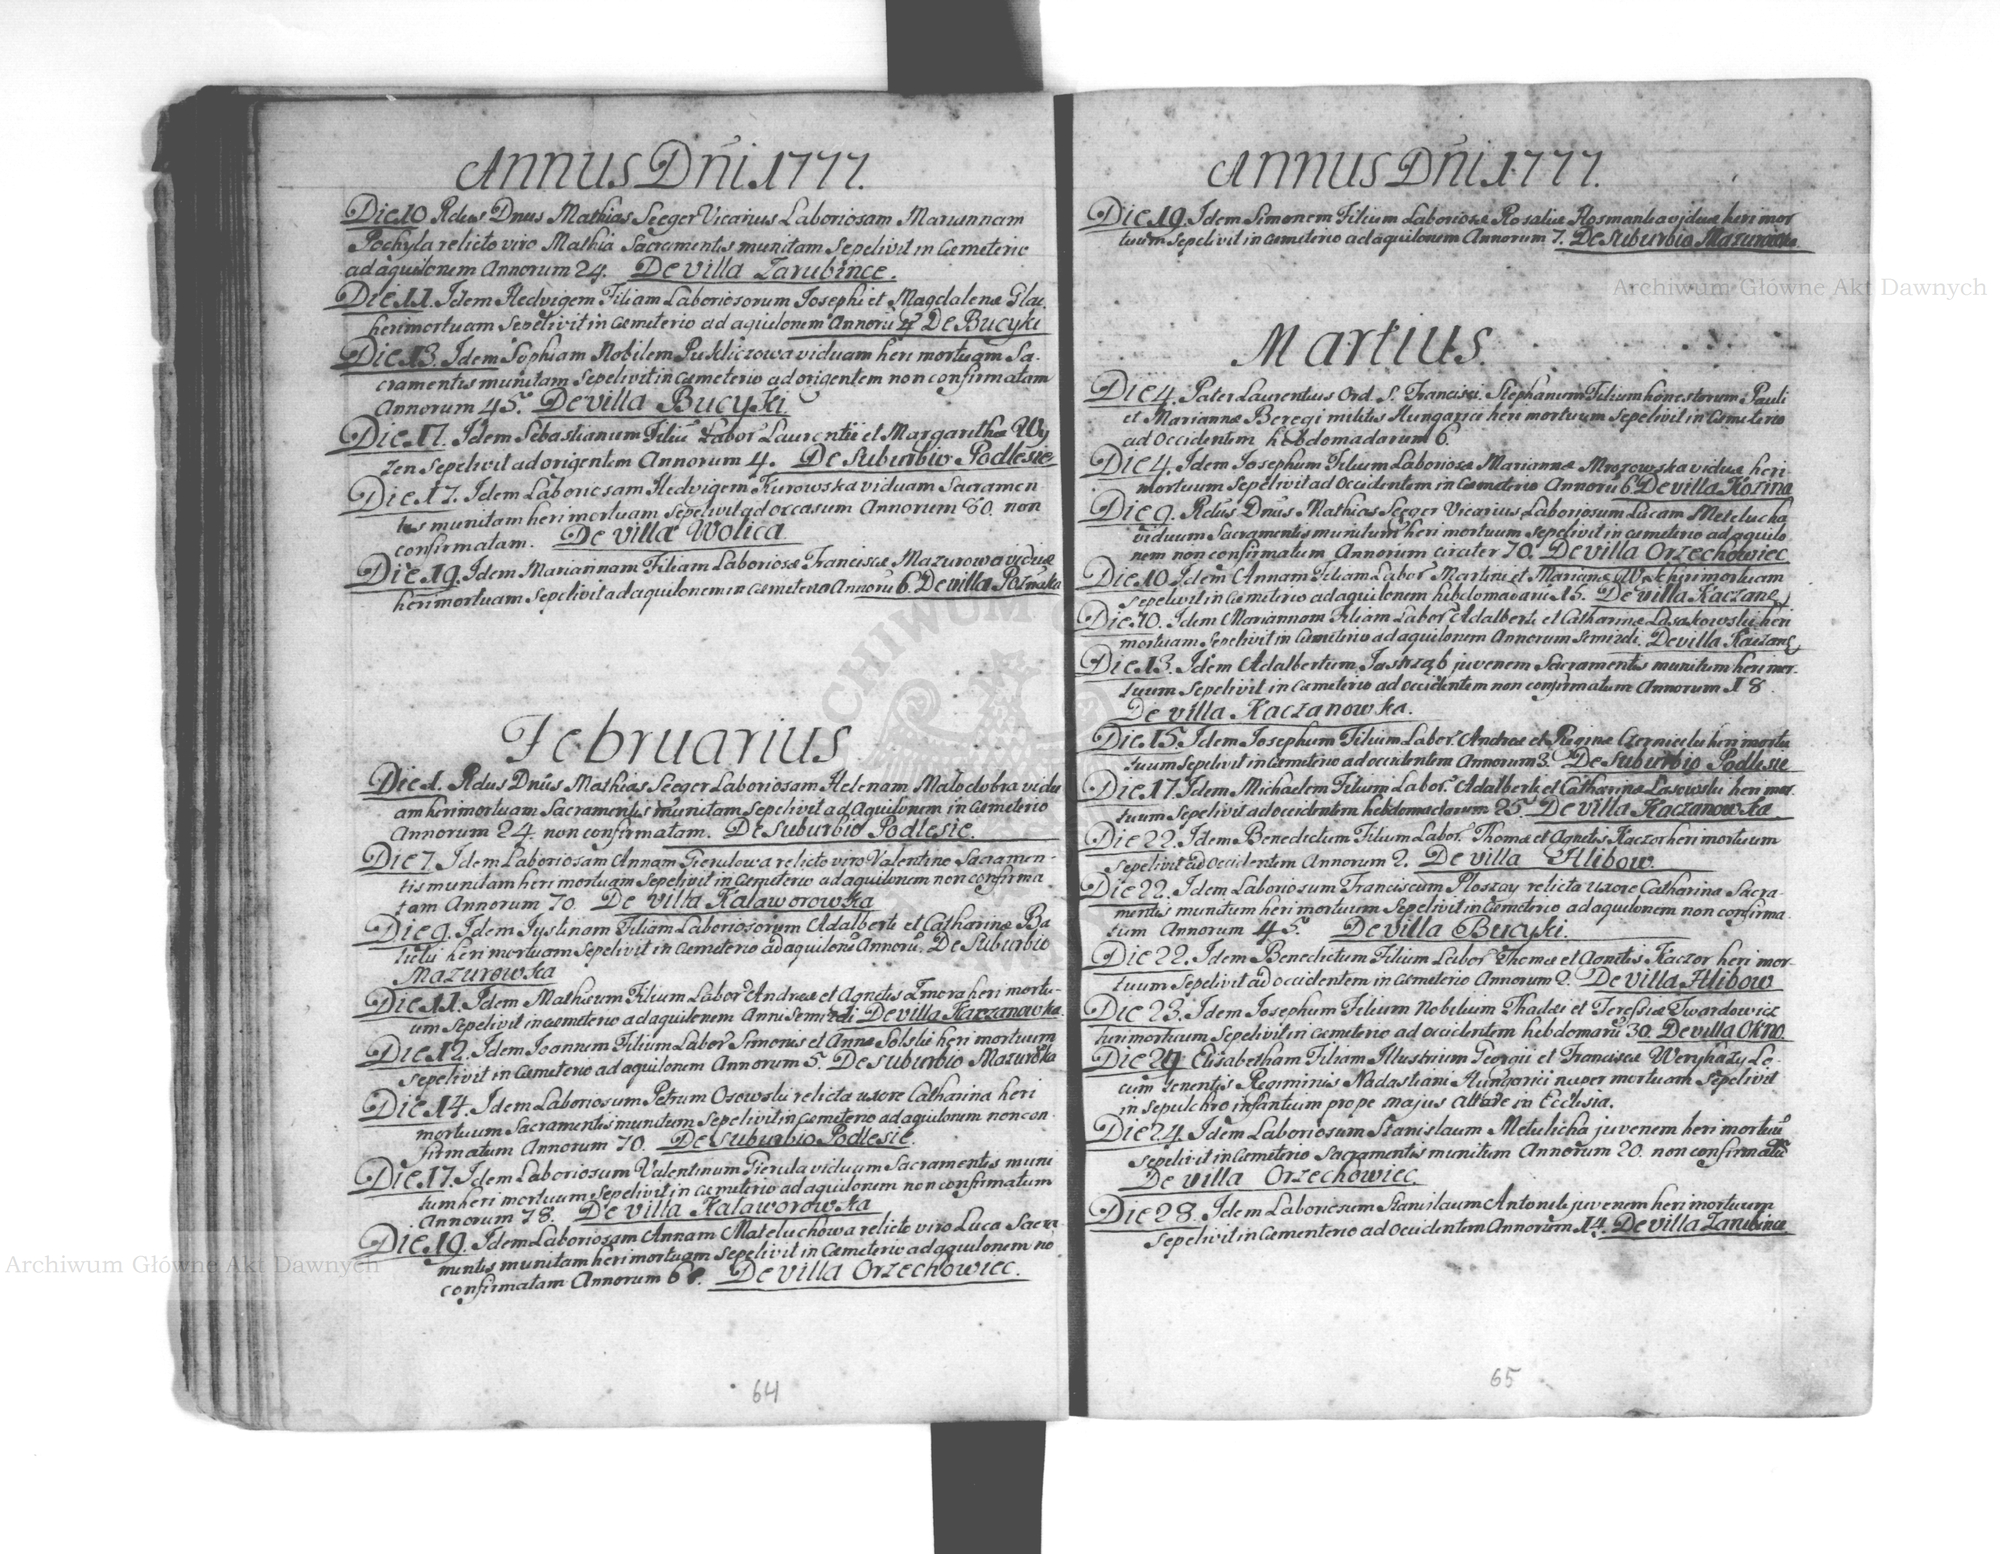 Annus Dñi 1777.
Die 10 Rdus Dnus Mathias Seeger Vicarius Laboriosam Mariannam
Pochyla relicto viro Mathia Sacramentis munitam sepelivit in Cæmeterio
ad aquilonem Annorum 24. De villa Zarubince.
Die 11. Idem Hedvigem Filiam Laboriosorum Josephi et Magdalenæ Glac
heri mortuam sepelivit in cæmeterio ad aquilonem Annorū 4 De Bucyki
Die 13. Idem Sophiam Nobilem viduam heri mortuam Sa-
cramentis munitam sepelivit in cæmeterio ad origentem non confirmatam
Annorum 45. De villa Bucyki
Die 17. Idem Sebastianum Filiū Labor Laurentii et Margarithæ Wy
zen sepelivit ad origentem Annorum 4. De Suburbio Podlesie
Die 17. Idem Laboriosam Hedvigem Kurowska viduam Sacramen-
tis munitam heri mortuam sepelivit ad occasum Annorum 60. non
confirmatam. De villa Wolica
Die 19. Idem Mariannam Filiam Laboriosæ Franciscæ Mazurowa viduæ
heri mortuam sepelivit ad aquilonem in cæmeterio Annorū 6. De villa Poznanka
Februarius
Die 1. Rdus Dnus Mathias Seeger Laboriosam Helenam Malodobra vidu
am heri mortuam Sacramentis munitam sepelivit ad Aquilonem in Cæmeterio
Annorum 24 non confirmatam. De Suburbio Podlesie.
Die 7. Idem Laboriosam Annam Gierulowa relicto viro Valentino Sacramen-
tis munitam heri mortuam sepelivit in Cæmeterio ad aquilonem non confirma
tam Annorum 70. De villa Kalaworowka
Die 9. Idem Justinam Filiam Laboriosorum Adalberti et Catharinæ Ba
heri mortuam sepelivit in Cæmeterio ad aquilonē Annorū. De Suburbio
Mazurowka
Die 11. Idem Mathæum Filium Labor Andreæ et Agnetis Zmora heri mortu-
um sepelivit in cæmeterio ad aquilonem Anni Semi De villa Kaczanowka.
Die 12. Idem Joannem Filium Labor Simonis et Annæ Solski heri mortuum
sepelivit in Cæmeterio ad aquilonem Annorum 5. De suburbio Mazurowka
Die 14. Idem Laboriosum Petrum Osowski relicta uxore Catharina heri
mortuum Sacramentis munitum sepelivit in Cæmeterio ad aquilonem non con-
firmatum Annorum 70. De suburbio Podlesie.
Die 17. Idem Laboriosum Valentinum Gierula viduum Sacramentis muni
tum heri mortuum sepelivit in cæmeterio ad aquilonem non confirmatum
Annorum 78. De villa Kalaworowka
Die 19. Idem Laboriosam Annam Mateluchowa relicto viro Luca Sacra-
mentis munitam heri mortuam sepelivit in Cæmeterio ad aquilonem nō
confirmatam Annorum De villa Orzechowiec.
64
Annus Dñi 1777.
Die 19. Idem Simonem Filium Laboriosæ Rosaliæ viduæ heri mor
tuum sepelivit in cæmeterio ad aquilonem Annorum 7. De Suburbio Mazurowka
Martius.
Die 4. Pater Laurentius Ord. S. Francisci. Stephanum Filium honestorum Pauli
et Mariannæ Beregi militis Hungarici heri mortuum sepelivit in Cæmeterio
ad Occidentem hebdomadarum 6.
Die 4. Idem Josephum Filium Laboriosæ Mariannæ Mrozowska viduæ heri
mortuum sepelivit ad Occidentem in Cæmeterio Annorū 6 De villa Kozina
Die 9. Rdus Dnus Mathias Seeger Vicarius Laboriosum Lucam Metelucha
viduum Sacramentis munitum heri mortuum sepelivit in cæmeterio ad aquilo
nem non confirmatum Annorum circiter 70. De villa Orzechowiec
Die 10. Idem Annam Filiam Labor Martini et Marianæ heri mortuam
sepelivit in Cæmeterio ad aquilonem hebdomadarū 15. De villa Kaczane
Die 10. Idem Mariannam Filiam Labor Adalberti et Catharinæ Lasakowski heri
mortuam sepelivit in Cæmeterio ad aquilonem Annorum De villa Kaczane
Die 13. Idem Adalbertum Jastrząb juvenem Sacramentis munitum heri mor-
tuum sepelivit in cæmeterio ad occidentem non confirmatum Annorum 18.
De villa Kaczanowka.
Die 15. Idem Josephum Filium Labor. Andreæ et Reginæ Czernecki heri mortu
tuum sepelivit in Cæmeterio ad occidentem Annorum 3. De Suburbio Podlesie
Die 17. Idem Michaelem Filium Labor. Adalberti et Catharinæ Lasowski heri mor-
tuum sepelivit ad occidentem hebdomadarum 25. De villa Kaczanowka.
Die 22. Idem Benedictum Filium Labor. Thomæ et Agnetis Kaczor heri mortuum
sepelivit ad Occidentem Annorum 2. De villa Hlibow.
Die 22. Idem Laboriosum Franciscum Ploszay relicta uxore Catharina Sacra-
mentis munitum heri mortuum sepelivit in Cæmeterio ad aquilonem non confirma.
tum Annorum 45. De villa Bucyki.
Die 22. Idem Benedictum Filium Labor Thomæ et Agnetis Kaczor heri mor-
tuum sepelivit ad occidentem in cæmeterio Annorum 2. De villa Hlibow
Die 23. Idem Josephum Filium Nobilium Thadæi et Teressiæ Twardowicz
heri mortuum sepelivit in cæmeterio ad occidentem hebdomarū 30. De villa Okno.
Die 24 Elisabetham Filiam Illustrium Georgii et Franciscæ Weryhazy Lo-
cum tenentis Regiminis Nadastiani Hungarici nuper mortuam sepelivit
in sepulchro infantium prope majus altare in Ecclesia.
Die 24. Idem Laboriosum Stanislaum Metulicha juvenem heri mortuū
sepelivit in Cæmeterio Sacramentis munitum Annorum 20. non confirmatū
De villa Orzechowiec.
Die 28. Idem Laboriosum Stanislaum Antonik juvenem heri mortuum
sepelivit in Cæmenterio ad Occidentem Annorum 14. De villa Zarubince
65
Archiwum Główne Akt Dawnych
Archiwum Główne Akt Dawnych